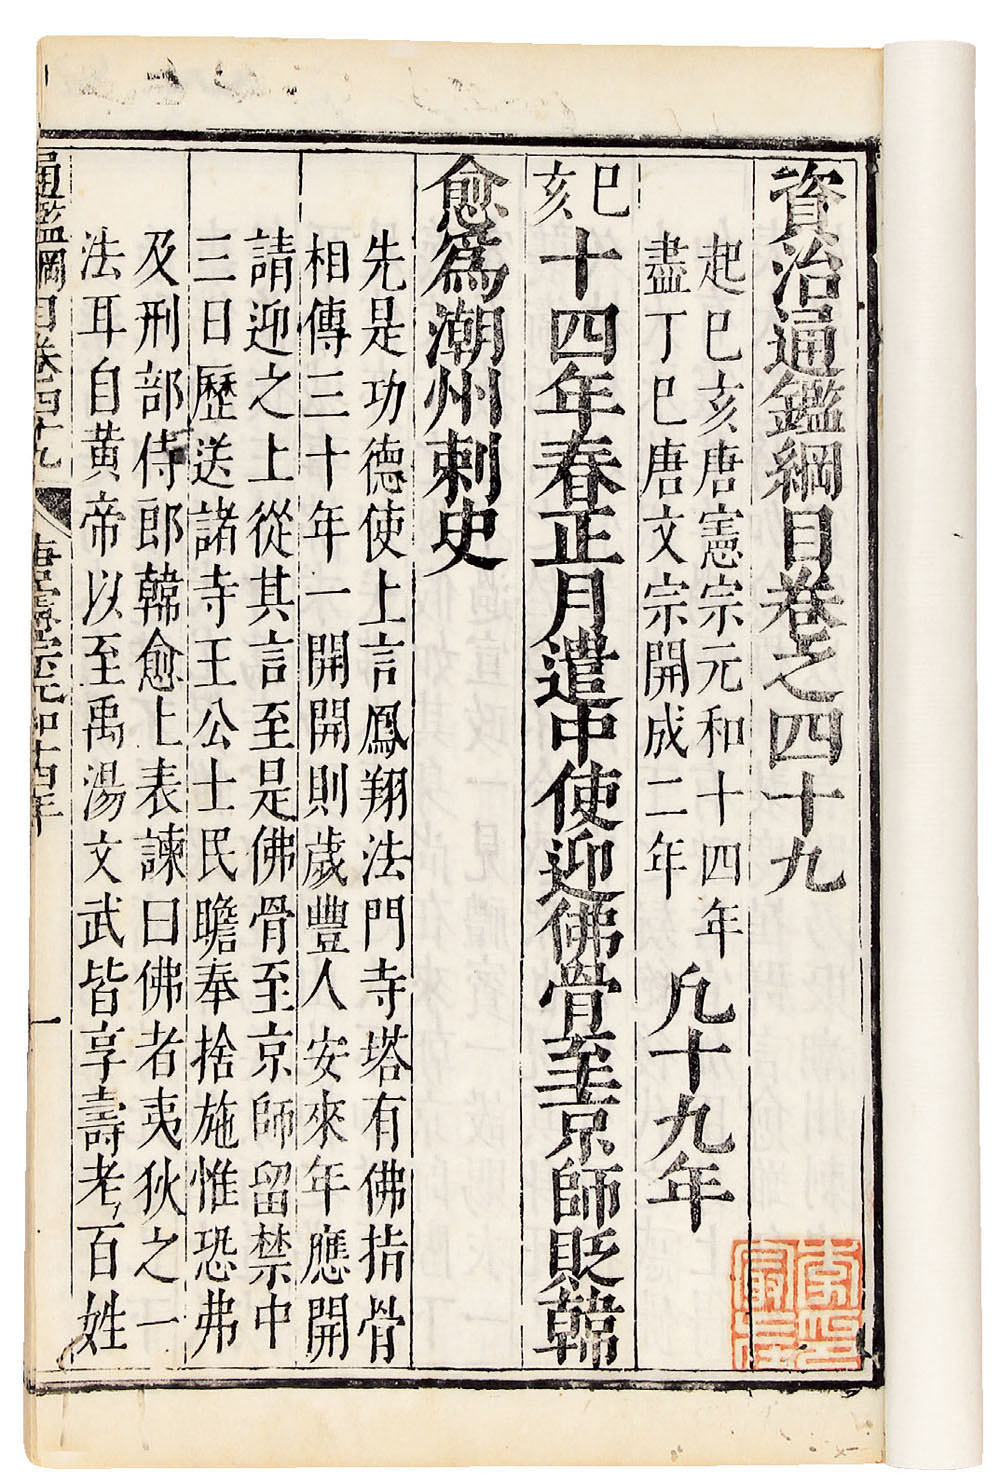 資治通鑑綱目卷之四十九
起己亥唐憲宗元和十四年
盡丁巳唐文宗開成二年
凡十九年
己亥
十四年春正月遣中使迎佛骨至京師貶韓
愈爲潮州刺史
先是功德使上言鳳翔法門寺塔有佛指骨
相傳三十年一開開則歲豐人安來年應開
請迎之上從其言至是佛骨至京師留禁中
三日歷送諸寺王公士民瞻奉捨施惟恐弗
及刑部侍郎韓愈上表諫曰佛者夷狄之一
法耳自黃帝以至禹湯文武皆享壽考百姓
通鑑綱目卷四十九
唐憲宗元和十四年
一